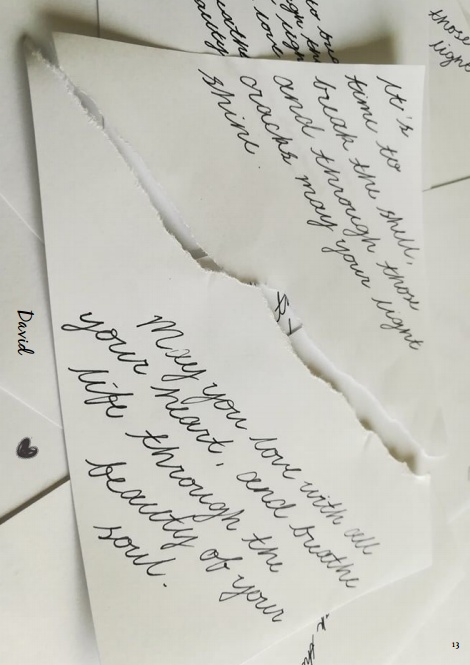 those
light
It's
time to
break the shell,
and through those
cracks may your light
shine.
May you love with all
your heart, and breathe
life through the
beauty of your
soul.
David
13